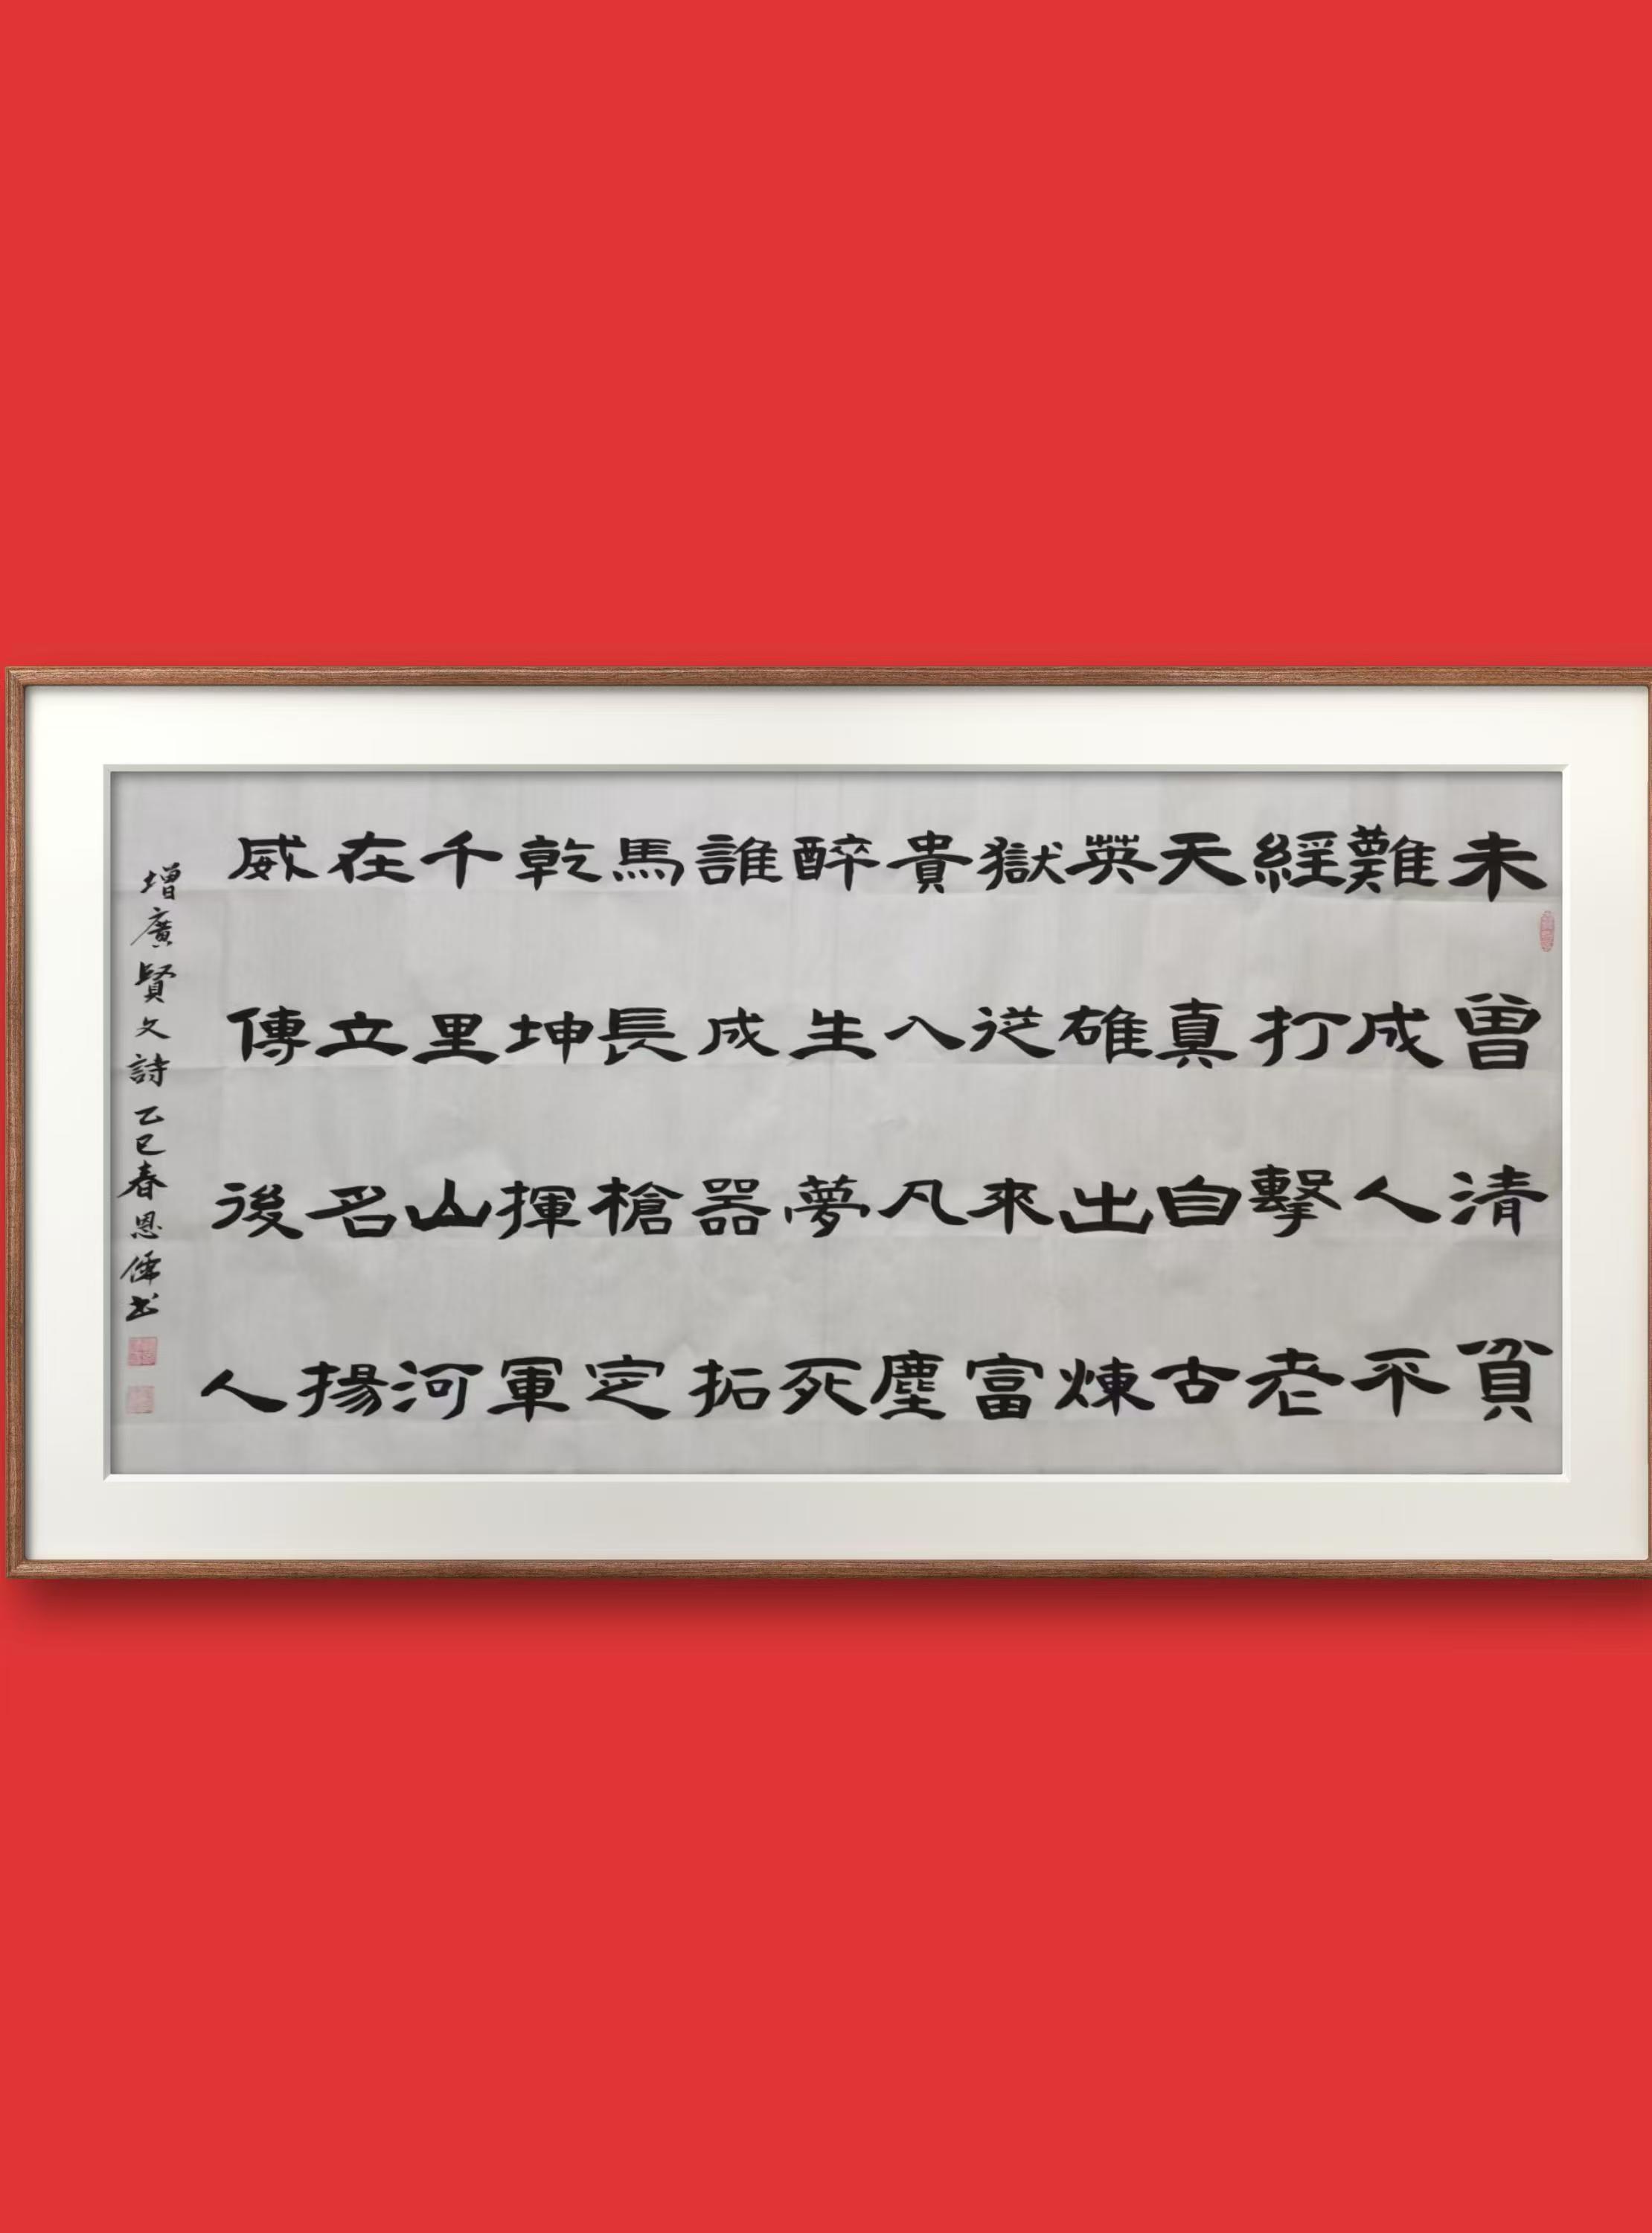 未曾清貧
難成人不
經打擊老
天真自古
英雄出煉
獄從來富
貴入凡塵
醉生夢死
誰成器拓
馬長槍定
乾坤揮軍
千里山河
在立名揚
威傳後人
增廣賢文詩乙巳春恩儒书